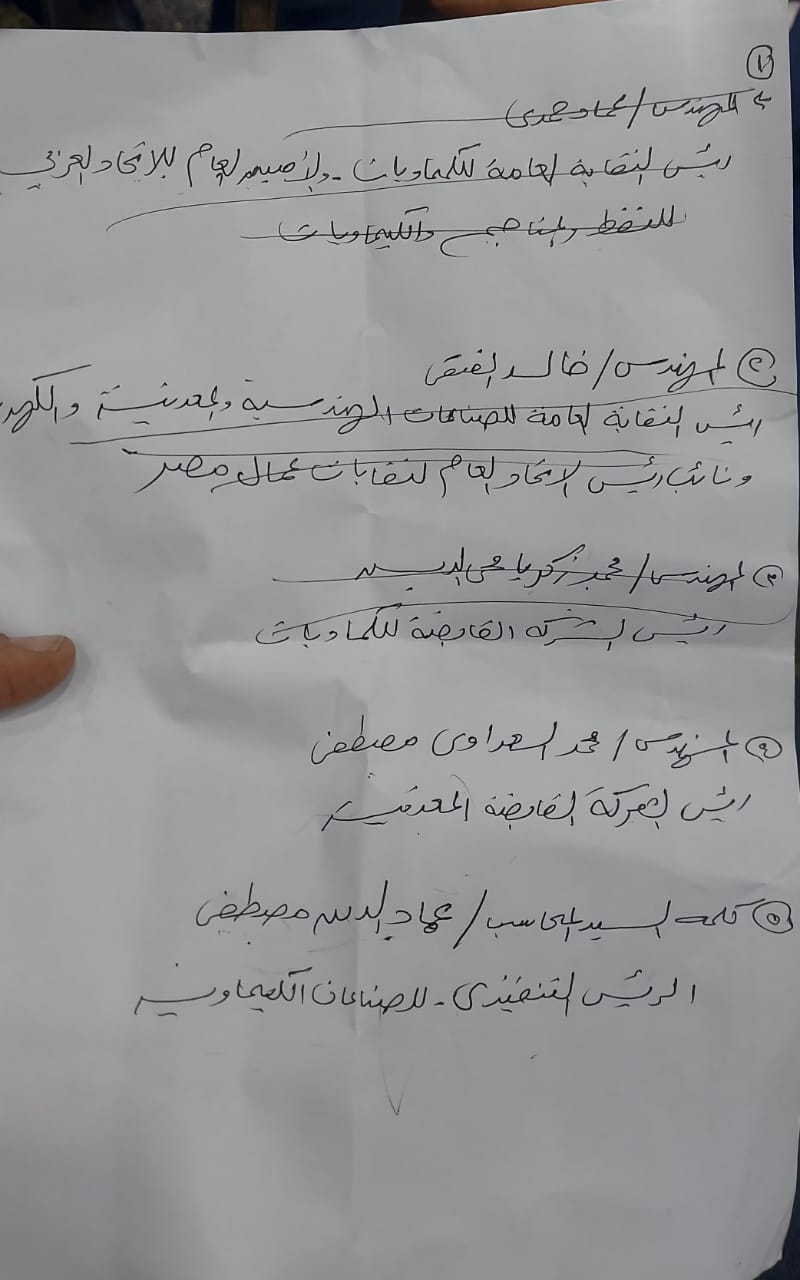 ١
المهندس / عماد حمدى
رئيس النقابة العامة للكيماويات - والأمين العام للاتحاد العربى
للنفط والمناجم والكيماويات
٢ المهندس / خالد الفقى
رئيس النقابة العامة للصناعات الهندسية والمعدنية والكهر
ونائب رئيس الاتحاد العام لنقابات عمال مصر
٣ المهندس / محمد زكريا محى الدين
رئيس الشركة القابضة للكيماويات
٤ المهندس / محمد السعداوى مصطفى
رئيس الشركة القابضة المعدنية
٥ كلمة السيد المحاسب / عماد الدين مصطفى
الرئيس التنفيذى - للصناعات الكيماوية